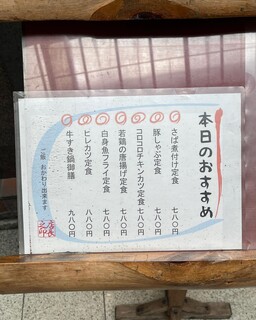 本日のおすすめ
さば煮付け定食 七八〇円
豚しゃぶ定食 七八〇円
コロコロチキンカツ定食 七八〇円
若鶏の唐揚げ定食 七八〇円
白身魚フライ定食 七八〇円
ヒレカツ定食 八八〇円
牛すき鍋御膳 九八〇円
ご飯 おかわり出来ます